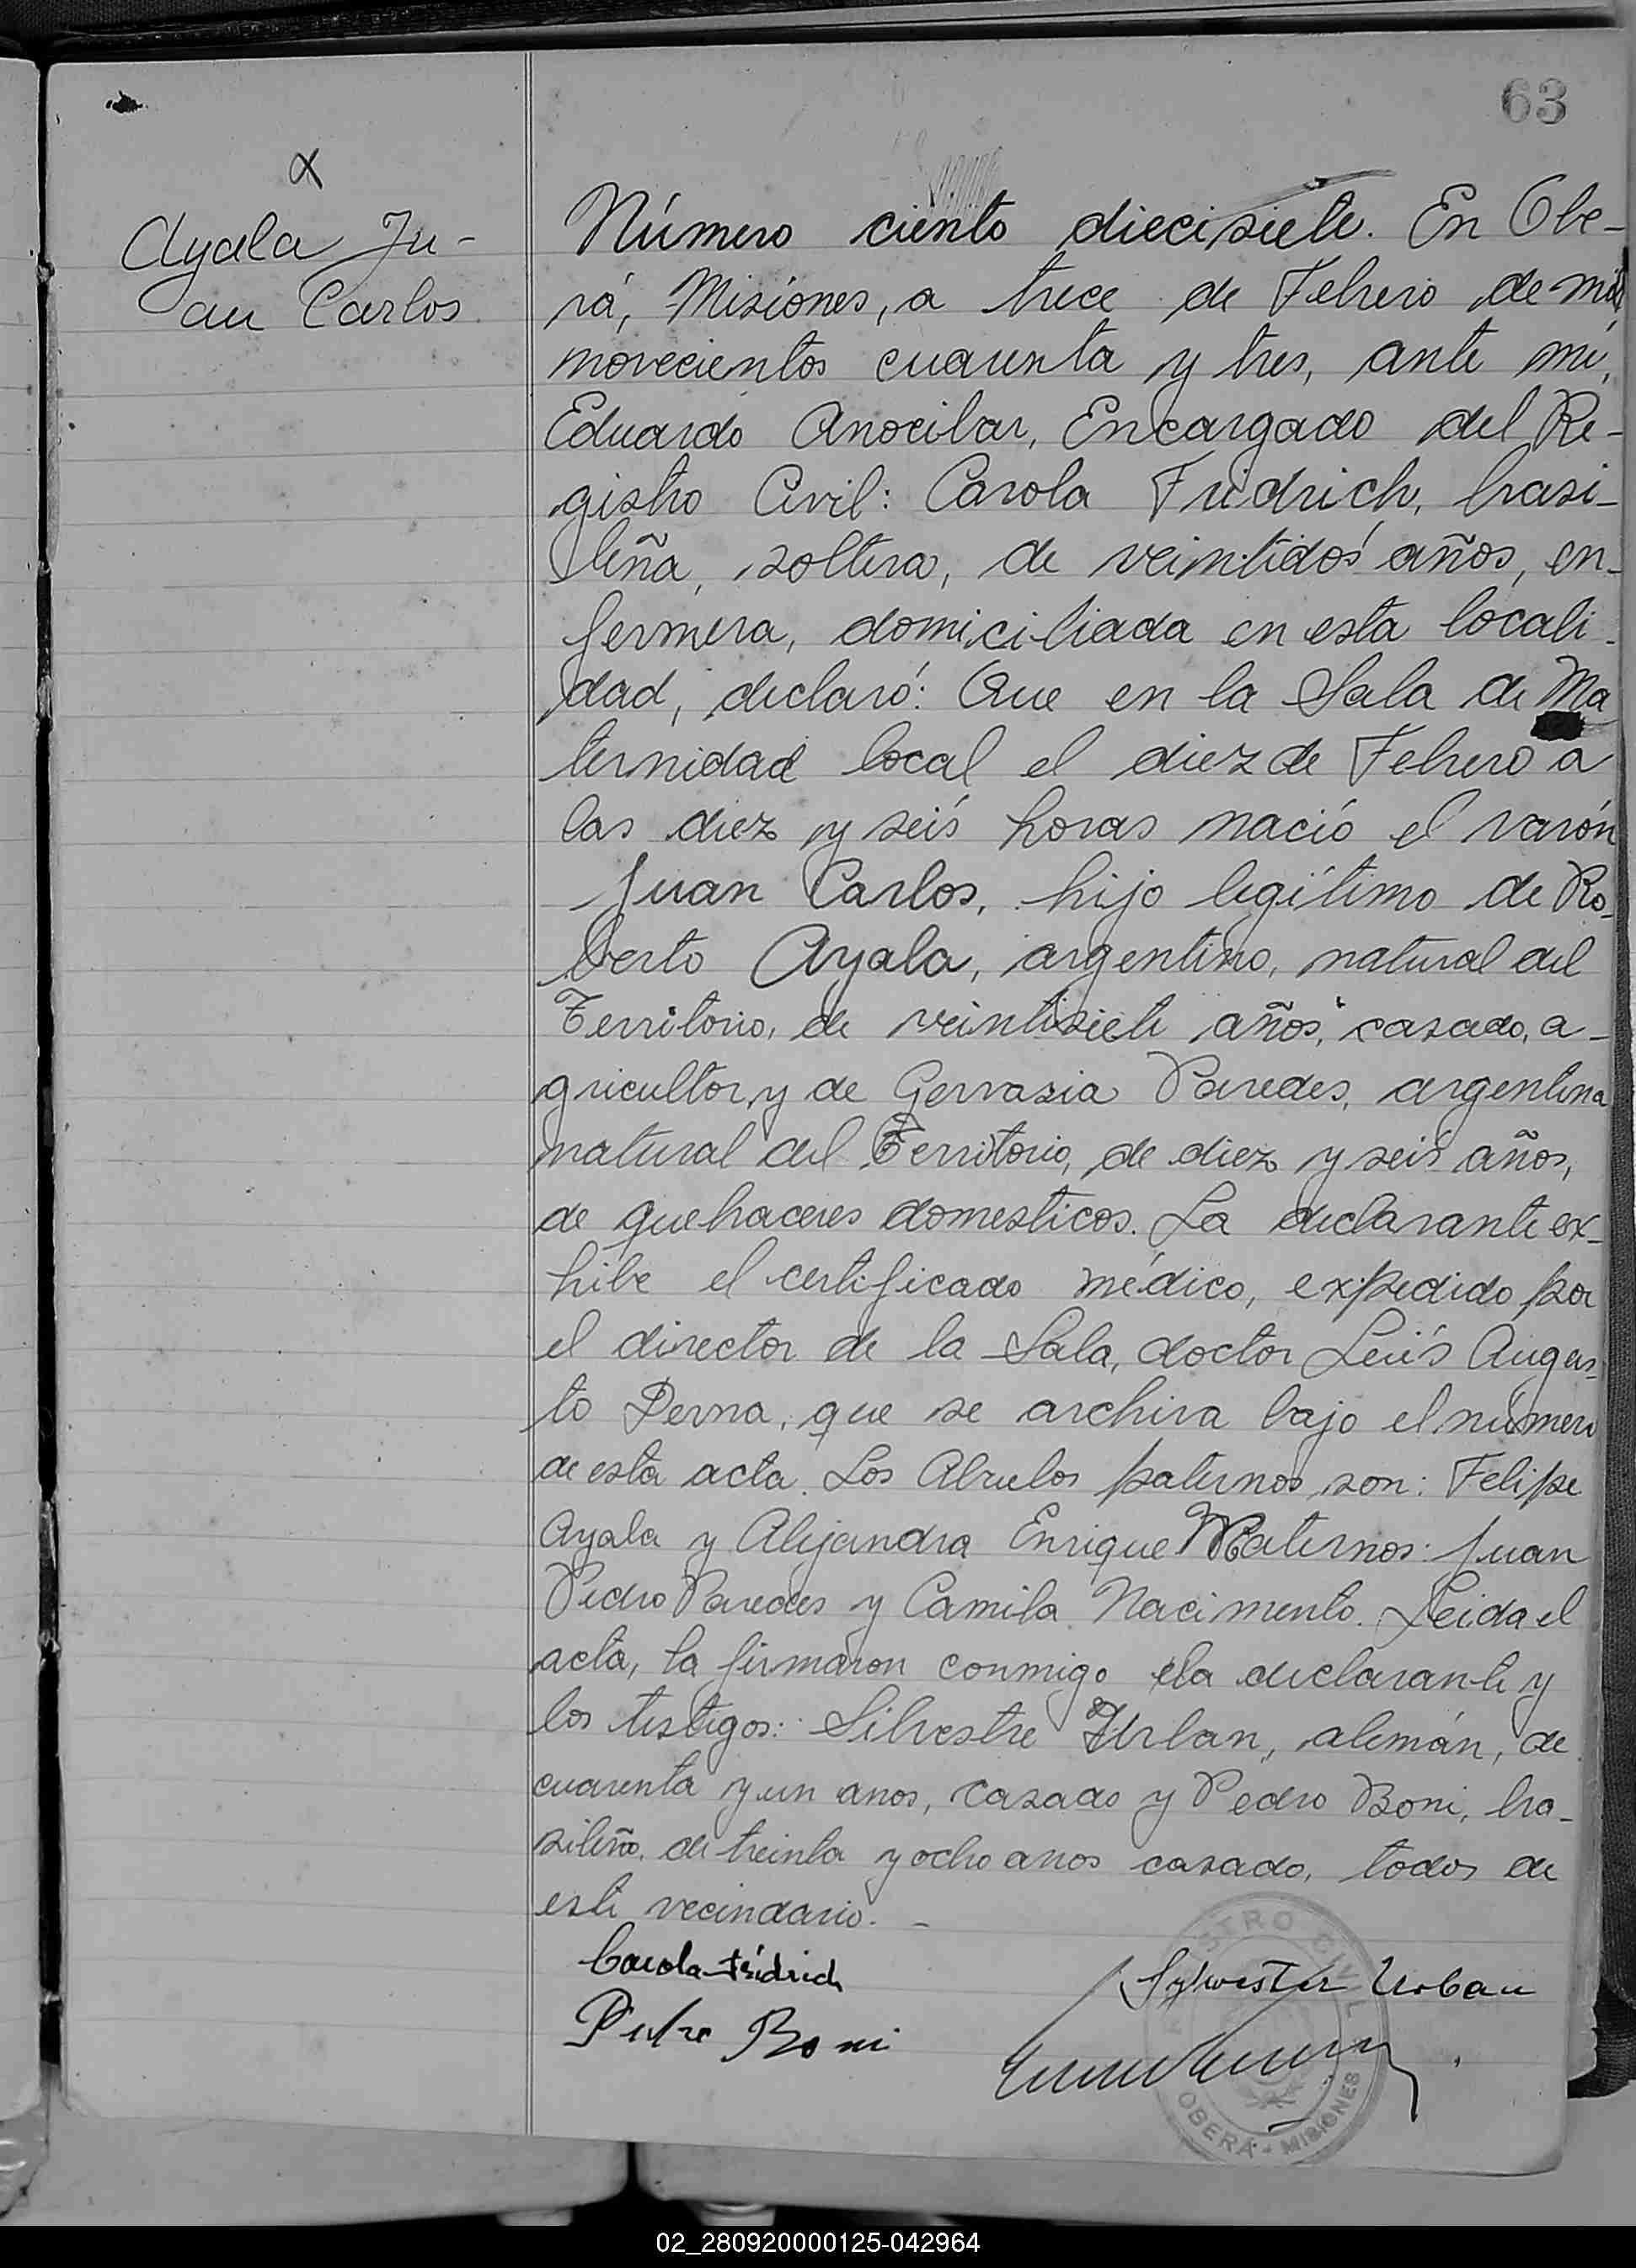 63
α
Ayala Ju-
an Carlos
Número ciento diecisiete. En Obe-
rá, Misiones, a trece de Febrero de mil
novecientos cuarenta y tres, ante mí,
Eduardo Anocibar, Encargado del Re-
gistro Civil: Carola Fridrich, brasi-
leña, soltera, de veintidós años, en-
fermera, domiciliada en esta locali-
dad, declaró: Que en la Sala de Ma
ternidad local el diez de Febrero a
las diez y seis horas nació el varón
Juan Carlos, hijo legítimo de Ro-
berto Ayala, argentino, natural del
Territorio, de veintisiete años, casado, a-
gricultor, y de Gervasia Paredes, argentina
natural del Territorio, de diez y seis años,
de quehaceres domesticos. La declarante ex-
hibe el certificado médico, expedido por
el director de la Sala, doctor Luís Augus-
to Derna, que se archiva bajo el número
de esta acta. Los Abuelos paternos son: Felipe
Ayala y Alejandra Enrique Maternos: Juan
Pedro Paredes y Camila Nacimento. Leida el
acta, la firmaron conmigo la declarante y
los testigos: Silvestre Urban, alemán, de
cuarenta y un anos, casado y Pedro Boni, bra-
sileño, de treinta y ocho anos casado, todos de
este vecindario. -
Carola Fridrich
Sylwester Urban
Pedro Boni
REGISTRO CIVIL
OBERÁ - MISIONES
02_280920000125-042964